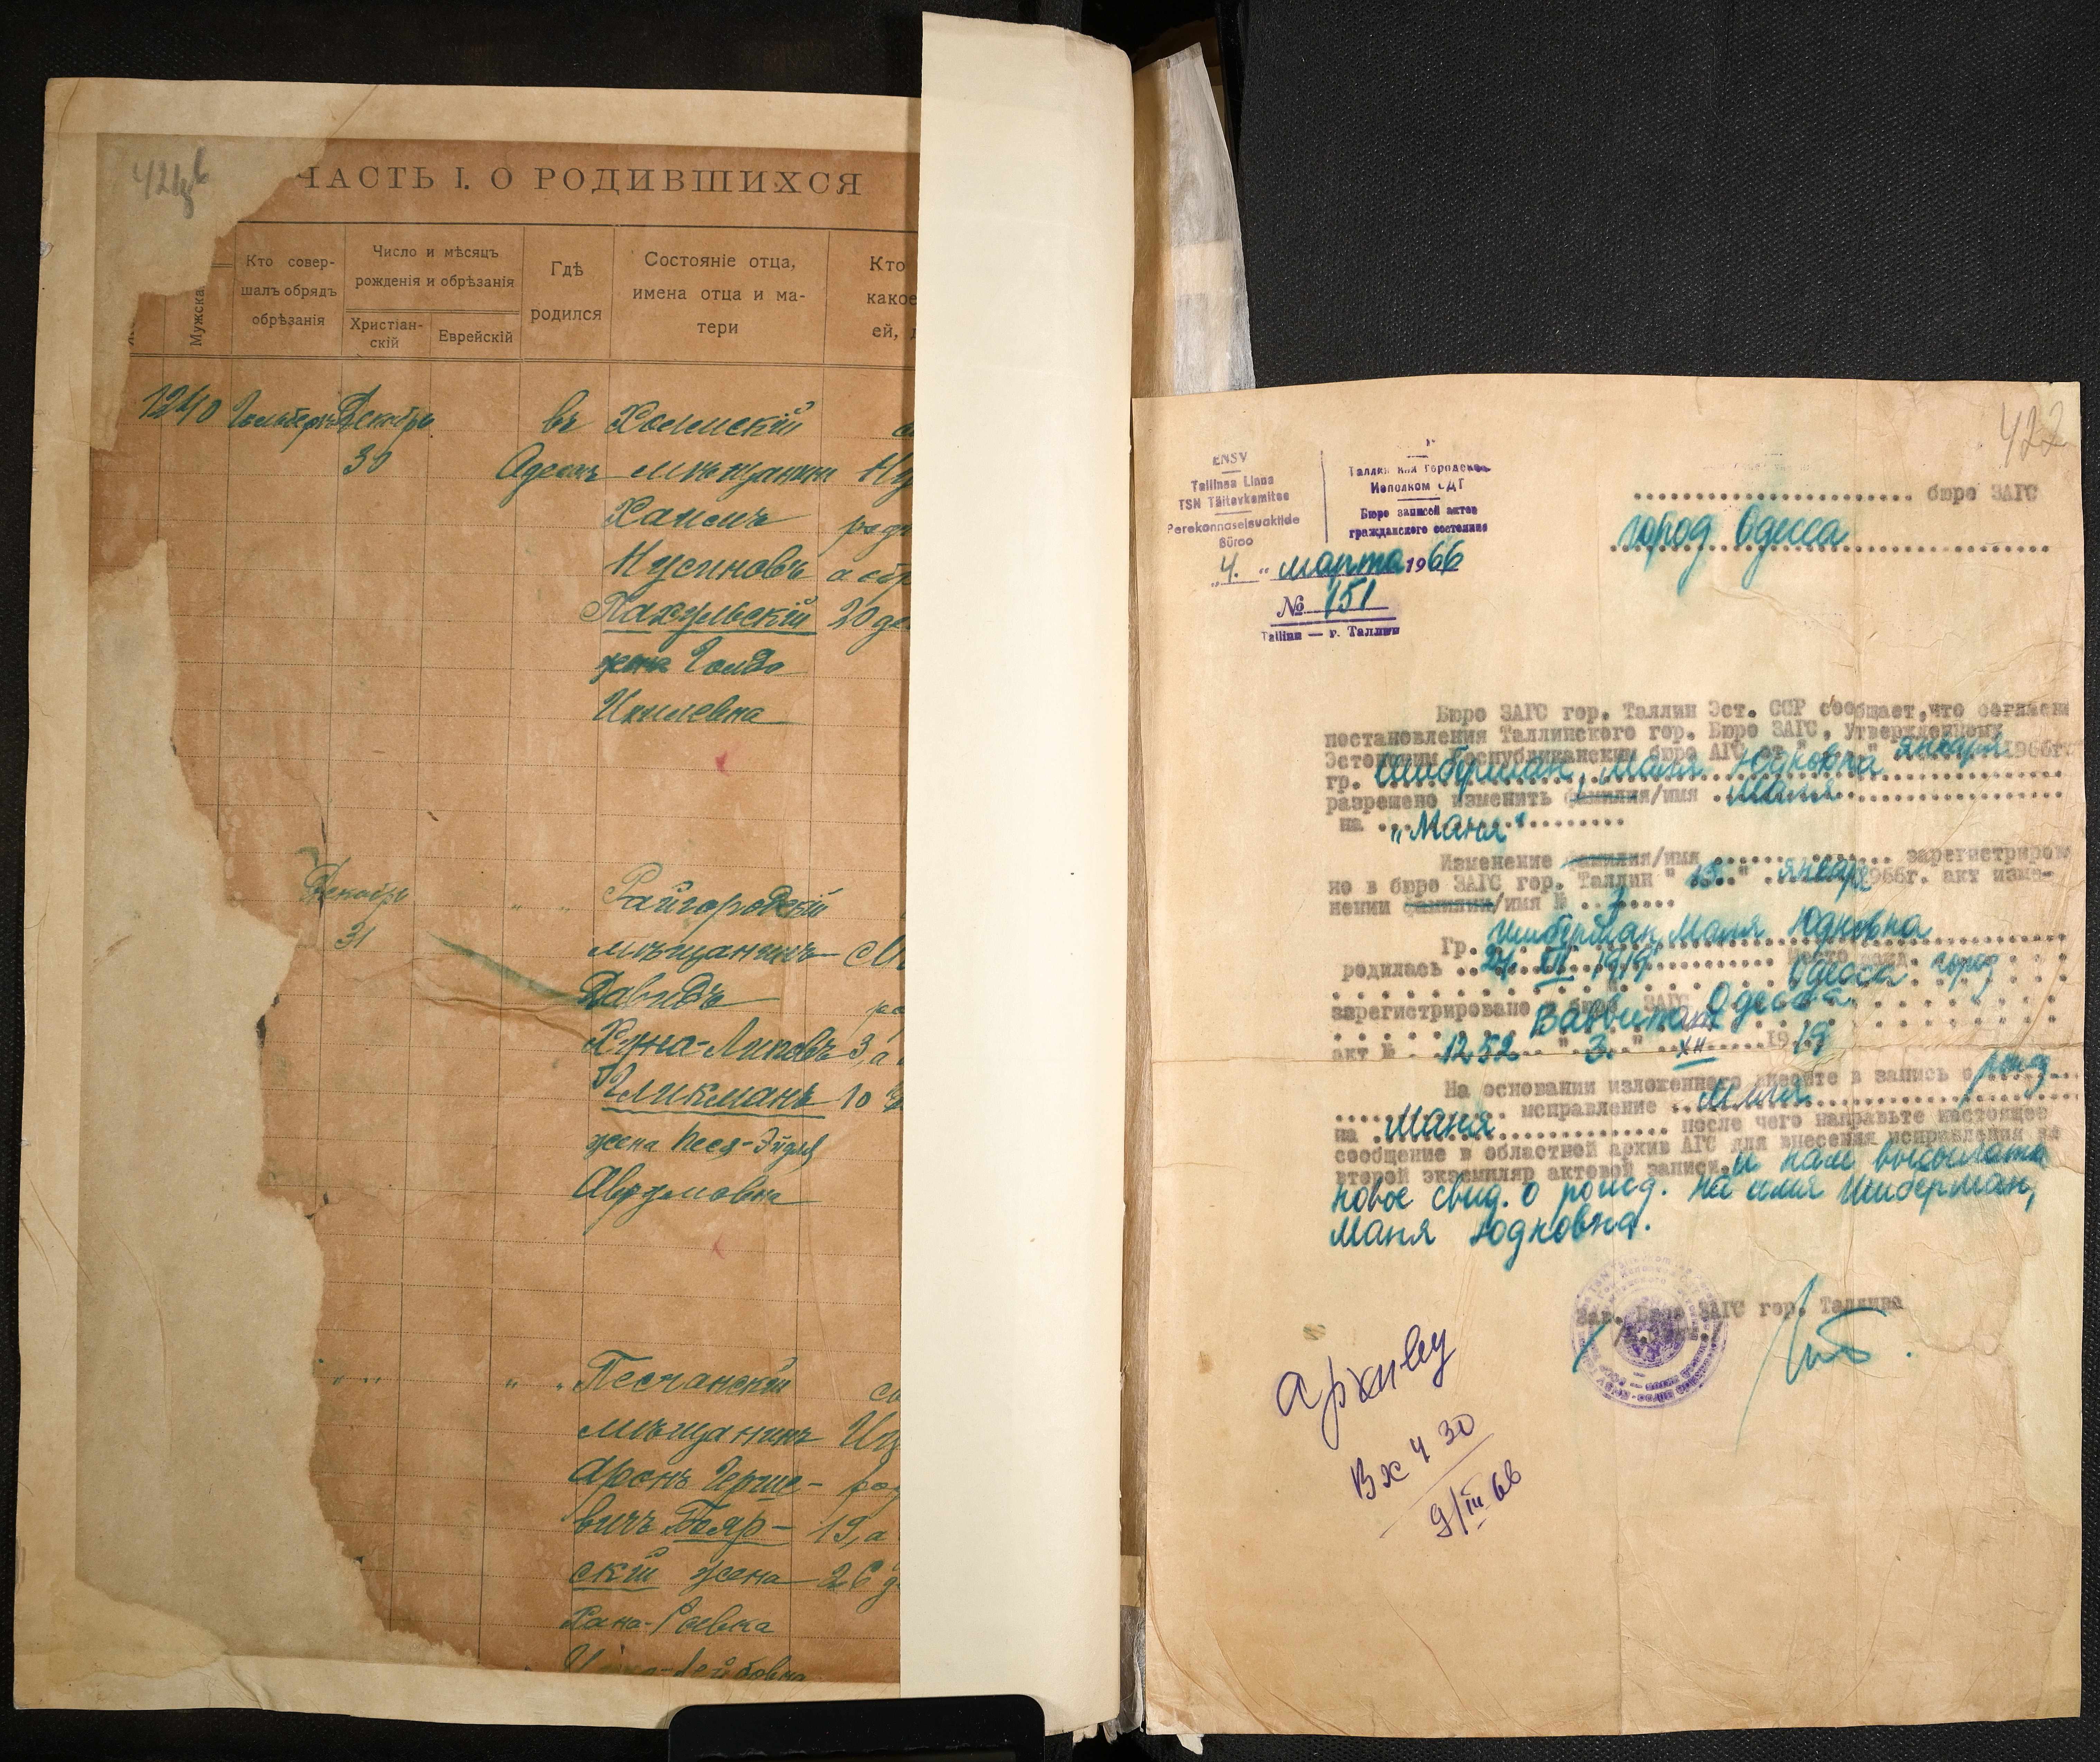 ЧАСТЬ I. О РОДИВШИХСЯ
Мужска
Кто совер-
шалъ обрядъ
обрѣзанія
Число и мѣсяцъ
рожденія и обрѣзанія
Христіан-
скій
Еврейскій
Гдѣ
родился
Состояніе отца,
имена отца и ма-
тери
Кто
какое
ей,
1240 Декабрь въ Холмскій
30 Одессѣ мѣщанинъ
Хаимъ
Нусиновъ
Пахульскій 20
жена Голда
Ицилевна
Декабрь Райгородскій
31 мѣщанинъ
Давидъ
Хуна-Липовъ 3, а
Гликманъ 10
жена Песя-Эйдля
Аврумовна
" " Песчанскій
мѣщанинъ
Аронъ Герше-
вичъ Бояр- 19, а
скій жена 26
Хана-Ривка
422
ENSV
Tallinna Linna
TSN Täitevkomitee
Perekonnaseisuaktide
Büroo
Исполком СДТ
Бюро записей актов
гражданского состояния
"4." марта 1966
№ 151
Tallinn — г. Таллин
бюро ЗАГС
город Одесса
Бюро ЗАГС гор. Таллин Эст. ССР сообщает, что согласно
постановления Таллинского гор. Бюро ЗАГС, Утвержденному
Эстонским Республиканским бюро АГС от " " января 1966г.
гр. Шиберман, Маня Юдковна
разрешено изменить фамилия/имя
на "Маня"
Изменение фамилия/имя зарегистриров
но в бюро ЗАГС гор. Таллин "13." января 1966г. акт изме-
нении фамилии/имя № 7
Гр. Шиберман, Маня Юдковна
родилась 27. XII 1919 Одесса город
зарегистрировано в бюро ЗАГС Одесса
акт № 1252 " 3. " XII 19 19
На основании изложенного внесите в запись о рожд
исправление
на Маня после чего направьте настоящее
сообщение в областной архив АГС для внесения исправления на
второй экземпляр актовой записи, и нам выслать
новое свид. о рожд. на имя Шиберман,
Маня Юдковна.
Зав. Бюро ЗАГС гор. Таллина
Архиву
Вх ч 30
9/III 66